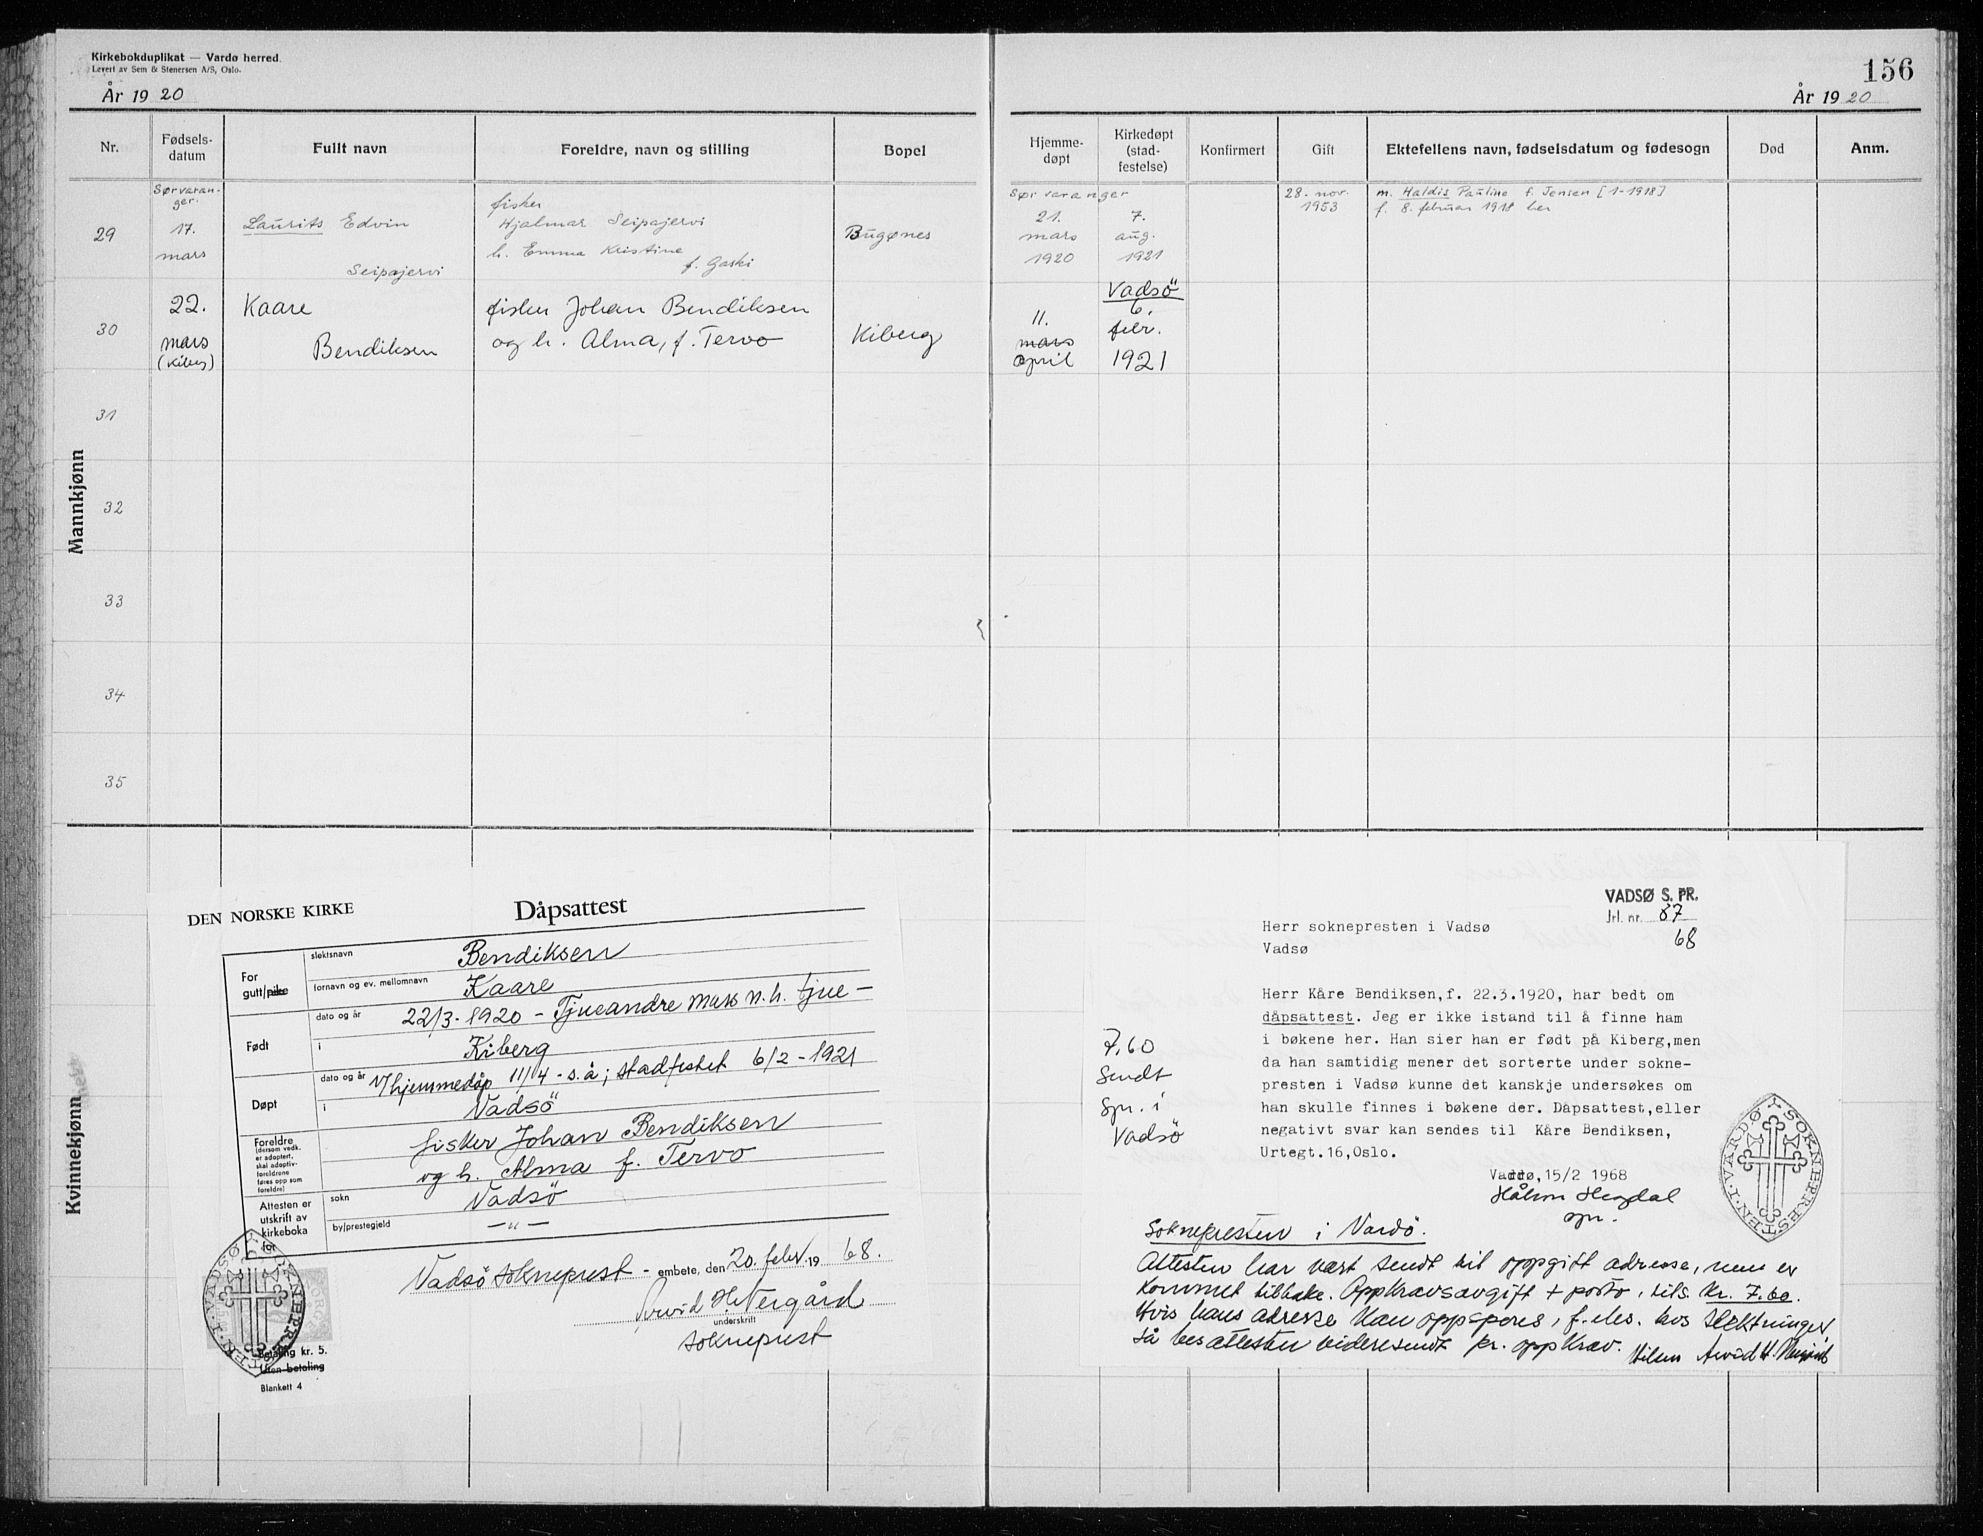 Kirkebokduplikat — Vardø herred.
Levert av Sem & Stenersen A/S, Oslo.
År 1920
156
År 1920
Nr.
Fødsels-
datum
Fullt navn
Foreldre, navn og stilling
Bopel
Hjemme-
døpt
Kirkedøpt
(stad-
festelse)
Konfirmert
Gift
Ektefellens navn, fødselsdatum og fødesogn
Død
Anm.
Mannkjønn
29
Sørvaran-
ger.
17.
mars
Laurits Edvin
Seipajervi
fisker
Hjalmar Seipajervi
h. Emma Kristine
f. Gaski
Bugønes
Sørvaranger
21.
mars
1920
7.
aug.
1921
28. nov.
1953
m. Haldis Pauline f. Jensen [1-1918]
f. 8. februar 1918 her
30
22.
mars
(Kiberg)
Kaare
Bendiksen
fisker Johan Bendiksen
og h. Alma, f. Tervo
Kiberg
11.
mars
april
Vadsö
6.
febr.
1921
31
32
33
34
35
Kvinnekjønn
DEN NORSKE KIRKE
Dåpsattest
For
gutt/pike
slektsnavn
Bendiksen
fornavn og ev. mellomnavn
Kaare
Født
dato og år
22/3-1920 - Tjueandre mars n.h. tjue-
i
Kiberg
Døpt
dato og år
v/hjemmedåp 11/4 - s.å; stadfestet 6/2-1921
i
Vadsö
Foreldre
(dersom vedk.
er adoptert,
skal adoptiv-
foreldrene
føres opp som
foreldre)
fisker Johan Bendiksen
og h. Alma f. Tervo
Attesten er
utskrift av
kirkeboka
for
sokn
Vadsö
by/prestegjeld
—"—
Vadsö sokneprest - embete, den 20. febr. 1968.
Arvid H. Nergård
underskrift
sokneprest
SOKNEPRESTEN I VADSØ
Betaling kr. 5.
Uten betaling
Blankett 4
VADSØ S. PR.
Jrl. nr. 87
68
Herr soknepresten i Vadsø
Vadsø
Herr Kåre Bendiksen,f. 22.3.1920, har bedt om
dåpsattest. Jeg er ikke istand til å finne ham
i bøkene her. Han sier han er født på Kiberg,men
da han samtidig mener det sorterte under sokne-
presten i Vadsø kunne det kanskje undersøkes om
han skulle finnes i bøkene der. Dåpsattest,eller
negativt svar kan sendes til Kåre Bendiksen,
Urtegt.16,Oslo.
7,60
Sendt
Spr. i
Vadsö
Vardø, 15/2 1968
spr.
SOKNEPRESTEN I VARDØ
Soknepresten i Vardö.
Attesten har vært sendt til oppgitt adresse, men er
kommet tilbake. Oppkravsavgift + porto, tils. kr. 7.60.
Hvis hans adresse kan oppspores, f.eks. hos slektninger,
så bes attesten videresendt pr. oppkrav. Hilsen Arvid H. Nergård